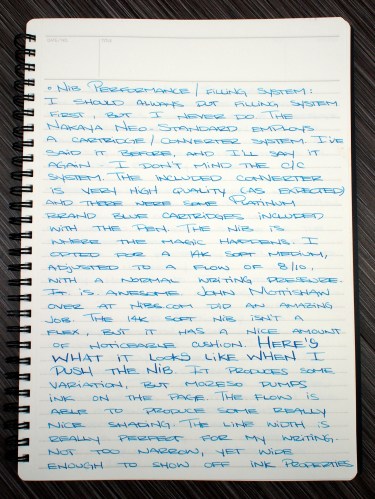 • Nib Performance / Filling System:
I should always put filling system
first, but I never do. The
Nakaya Neo-Standard employs
a cartridge/converter system. I've
said it before, and I'll say it
again. I don't mind the c/c
system. The included converter
is very high quality (as expected)
and there were some Platinum
brand blue cartridges included
with the pen. The nib is
where the magic happens. I
opted for a 14k soft medium,
adjusted to a flow of 8/10,
with a normal writing pressure.
It is awesome. John Mottishaw
over at nibs.com did an amazing
job. The 14k soft nib isn't a
flex, but it has a nice amount
of noticeable cushion. Here's
what it looks like when I
push the nib. It produces some
variation, but moreso dumps
ink on the page. The flow is
able to produce some really
nice shading. The line width is
really perfect for my writing.
Not too narrow, yet wide
enough to show off ink properties